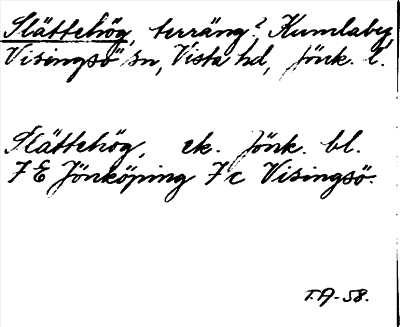 Slättehög, terräng? Kumlaby,
Visingsö sn, Vista hd, Jönk. l.
Slättehög, ek. Jönk. bl.
7 E Jönköping 7 c Visingsö.
T.A-58.